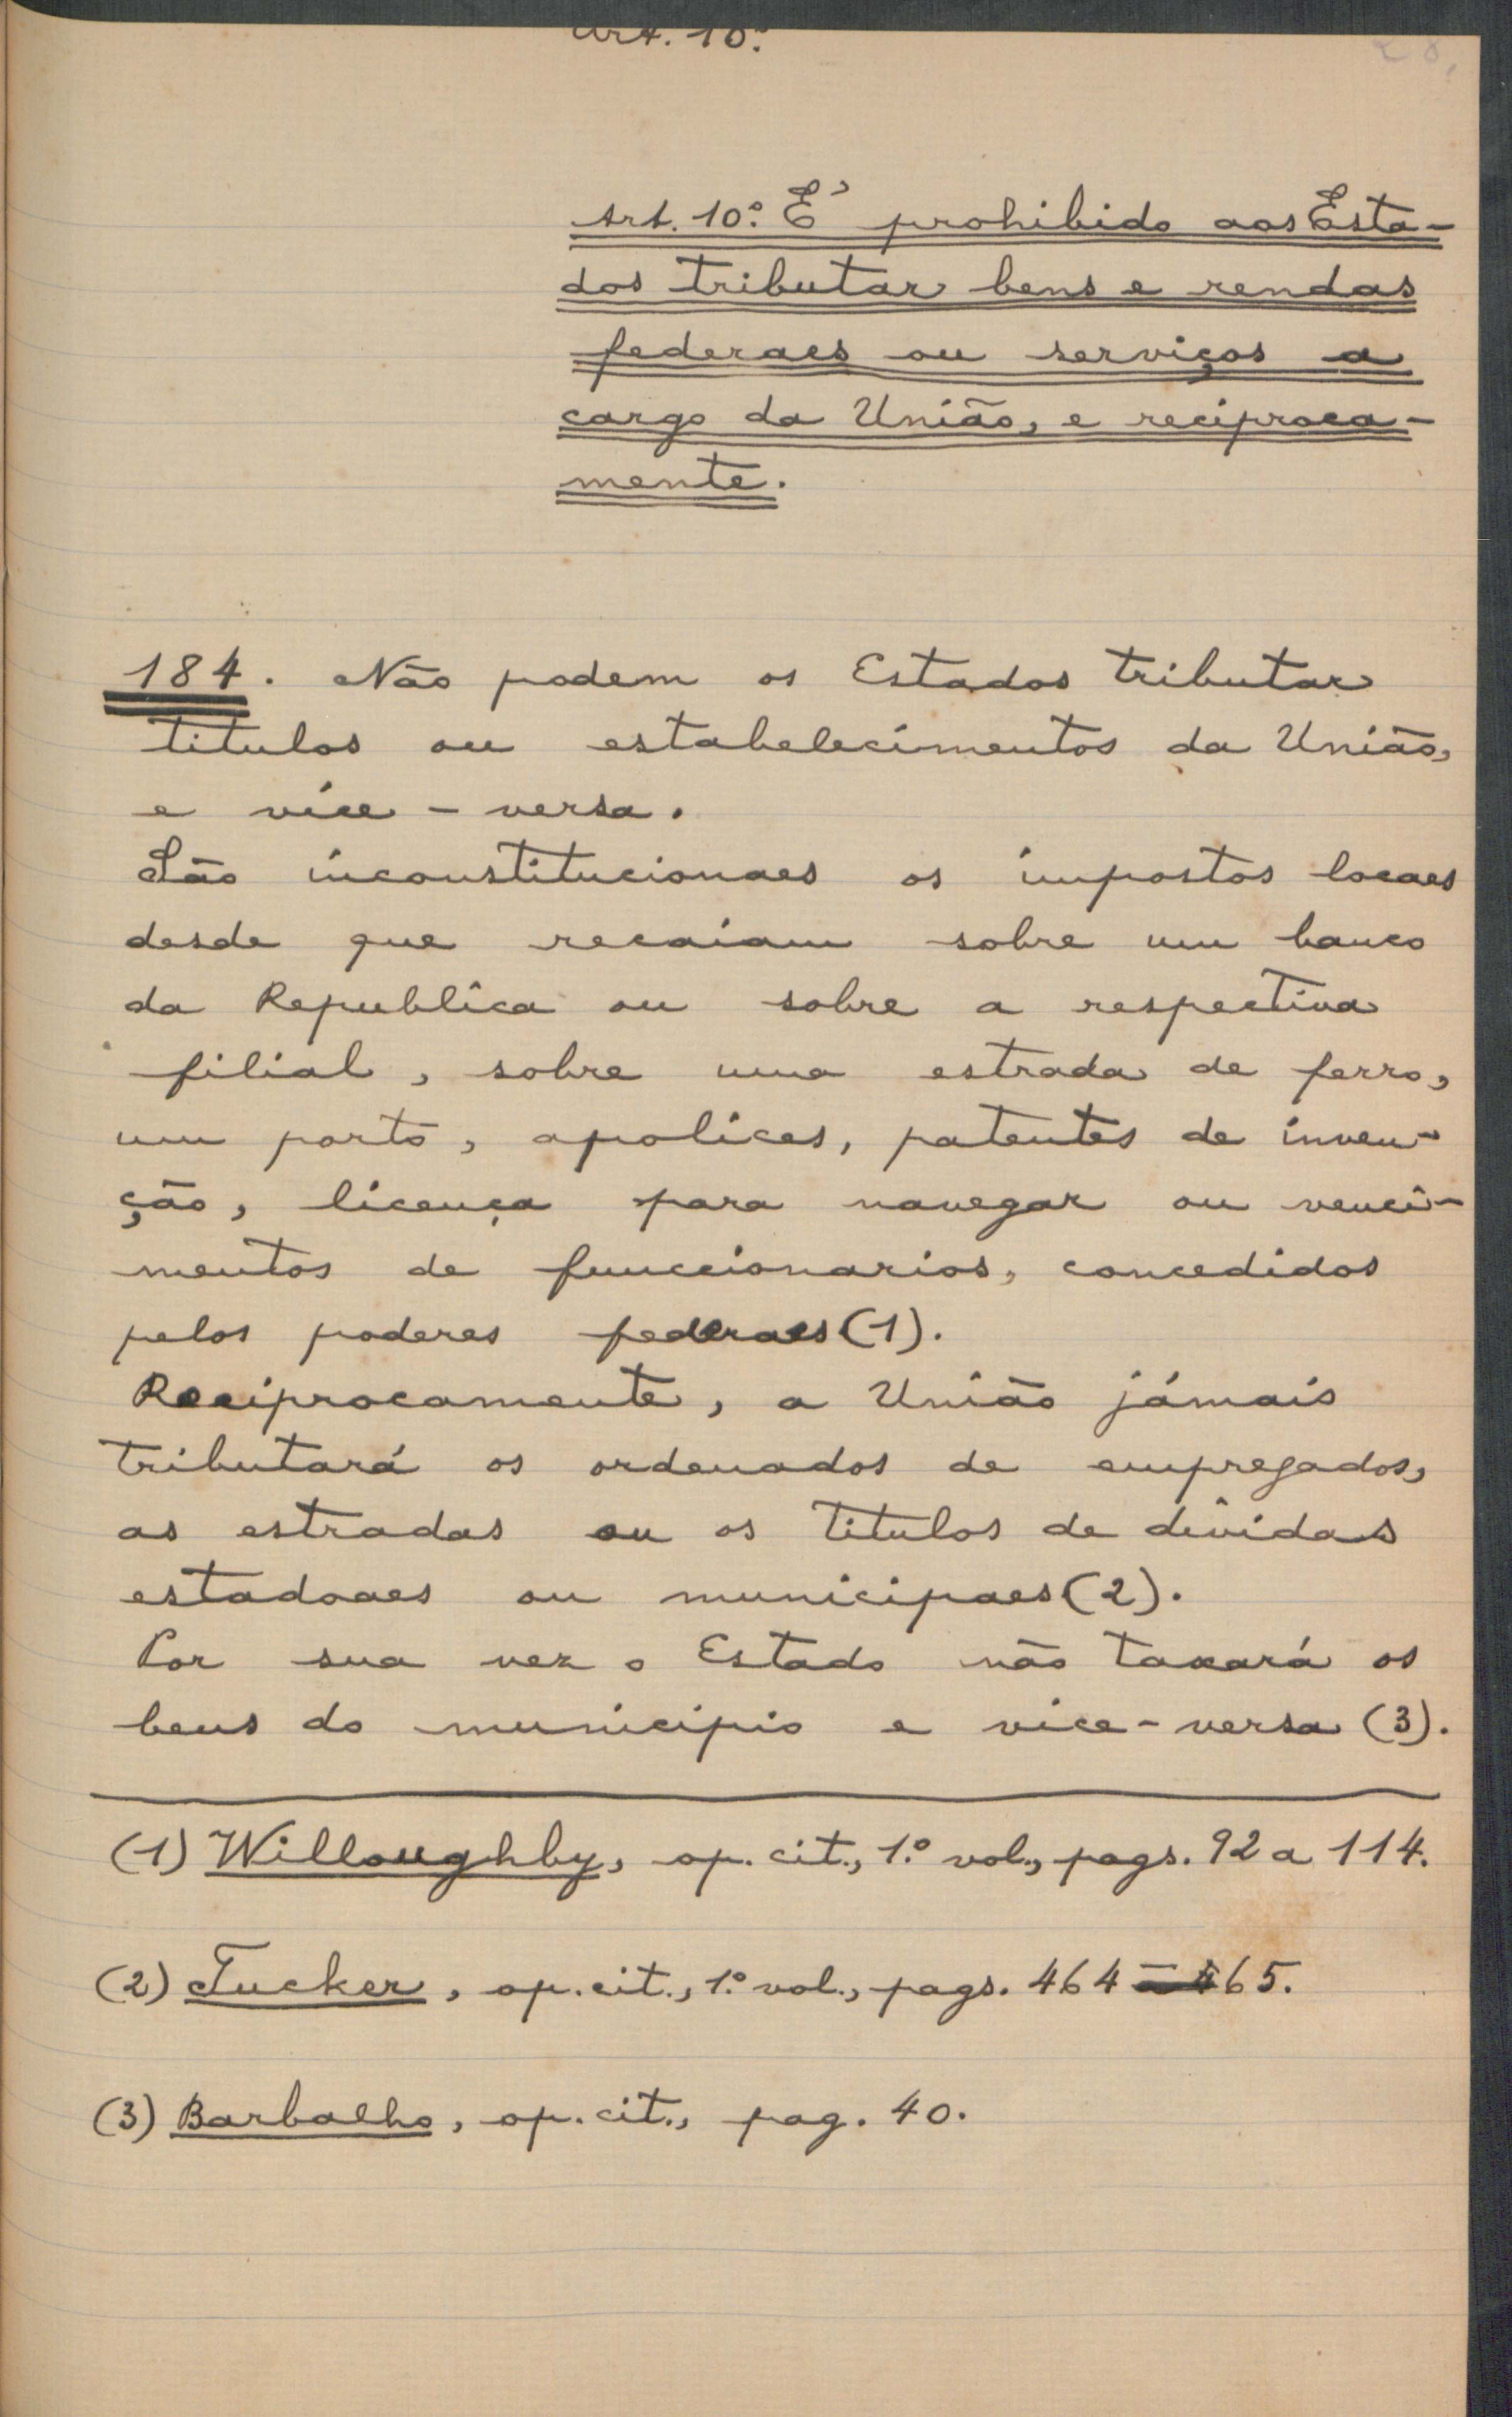 Art. 10.º
Art. 10.º É prohibido aos Esta-
dos tributar bens e rendas
federaes ou serviços a
cargo da União, e reciproca-
mente.
184. Não podem os Estados tributar
titulos ou estabelecimentos da União,
e vice-versa.
São inconstitucionaes os impostos locaes
desde que recaiam sobre um banco
da Republica ou sobre a respectiva
filial, sobre uma estrada de ferro,
um porto, apolices, patentes de inven-
ção, licença para navegar ou venci-
mentos de funccionarios, concedidos
pelos poderes federaes (1).
Reciprocamente, a União jámais
tributará os ordenados de empregados,
as estradas ou os titulos de dividas
estadoaes ou municipaes (2).
Por sua vez o Estado não taxará os
bens do municipio e vice-versa (3).
(1) Willoughby, op. cit., 1.º vol., pags. 92 a 114.
(2) Tucker, op. cit., 1.º vol., pags. 464-465.
(3) Barbalho, op. cit., pag. 40.